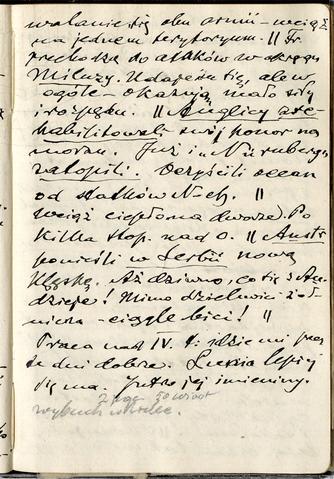 walanie się obu armii – wciąż
na jednem terytoryum. || Fr.
przechodzą do ataków w okręgu
Miluzy. Udaje im się, ale w
ogóle – okazują mało siły
i rozpędu. || Anglicy zre-
habilitowali swój honor na
morzu. Już i „Nürnberg"
zatopili. Oczyścili ocean
od statków N-ch. ||
Wciąż ciepło na dworze. Po
kilka stop. nad 0. || Austr.
ponieśli w Serbii nową
klęskę. Aż dziwno, co się z A.
dzieje! Mimo dzielności żoł-
nierza – ciągle bici! ||
Praca nad IV. t. idzie mi przez
te dni dobrze. Luzia lepiej
się ma. Jutro jej imieniny.
wybuch